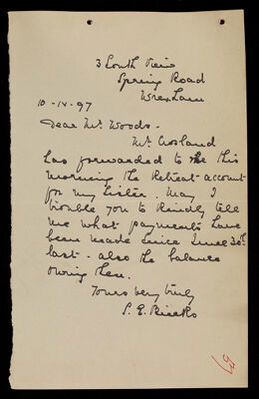 3 South View
Spring Road
Wrexham
10-14-97
Dear Mr. Woods.
Mr. Crosland
has forwarded to me this
morning the Retreat account
for my Sister. May I
trouble you to kindly tell
me what payments have
been made since June 30th
last - also the balance
owing then.
Yours very truly
S. E.